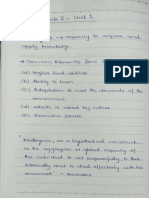 Unit 1
capacity to acquire and
apply knowledge.
Common Elements from
(a) Higher level abilities
(b) Ability to learn
(c) Adaptation to meet the demands of the
environment
(e) Executive process
Intelligence, as a hypothetical construct
is the aggregate or global capacity of
the individual to act purposefully, to think
rationally and to deal effectively with his
environment. -